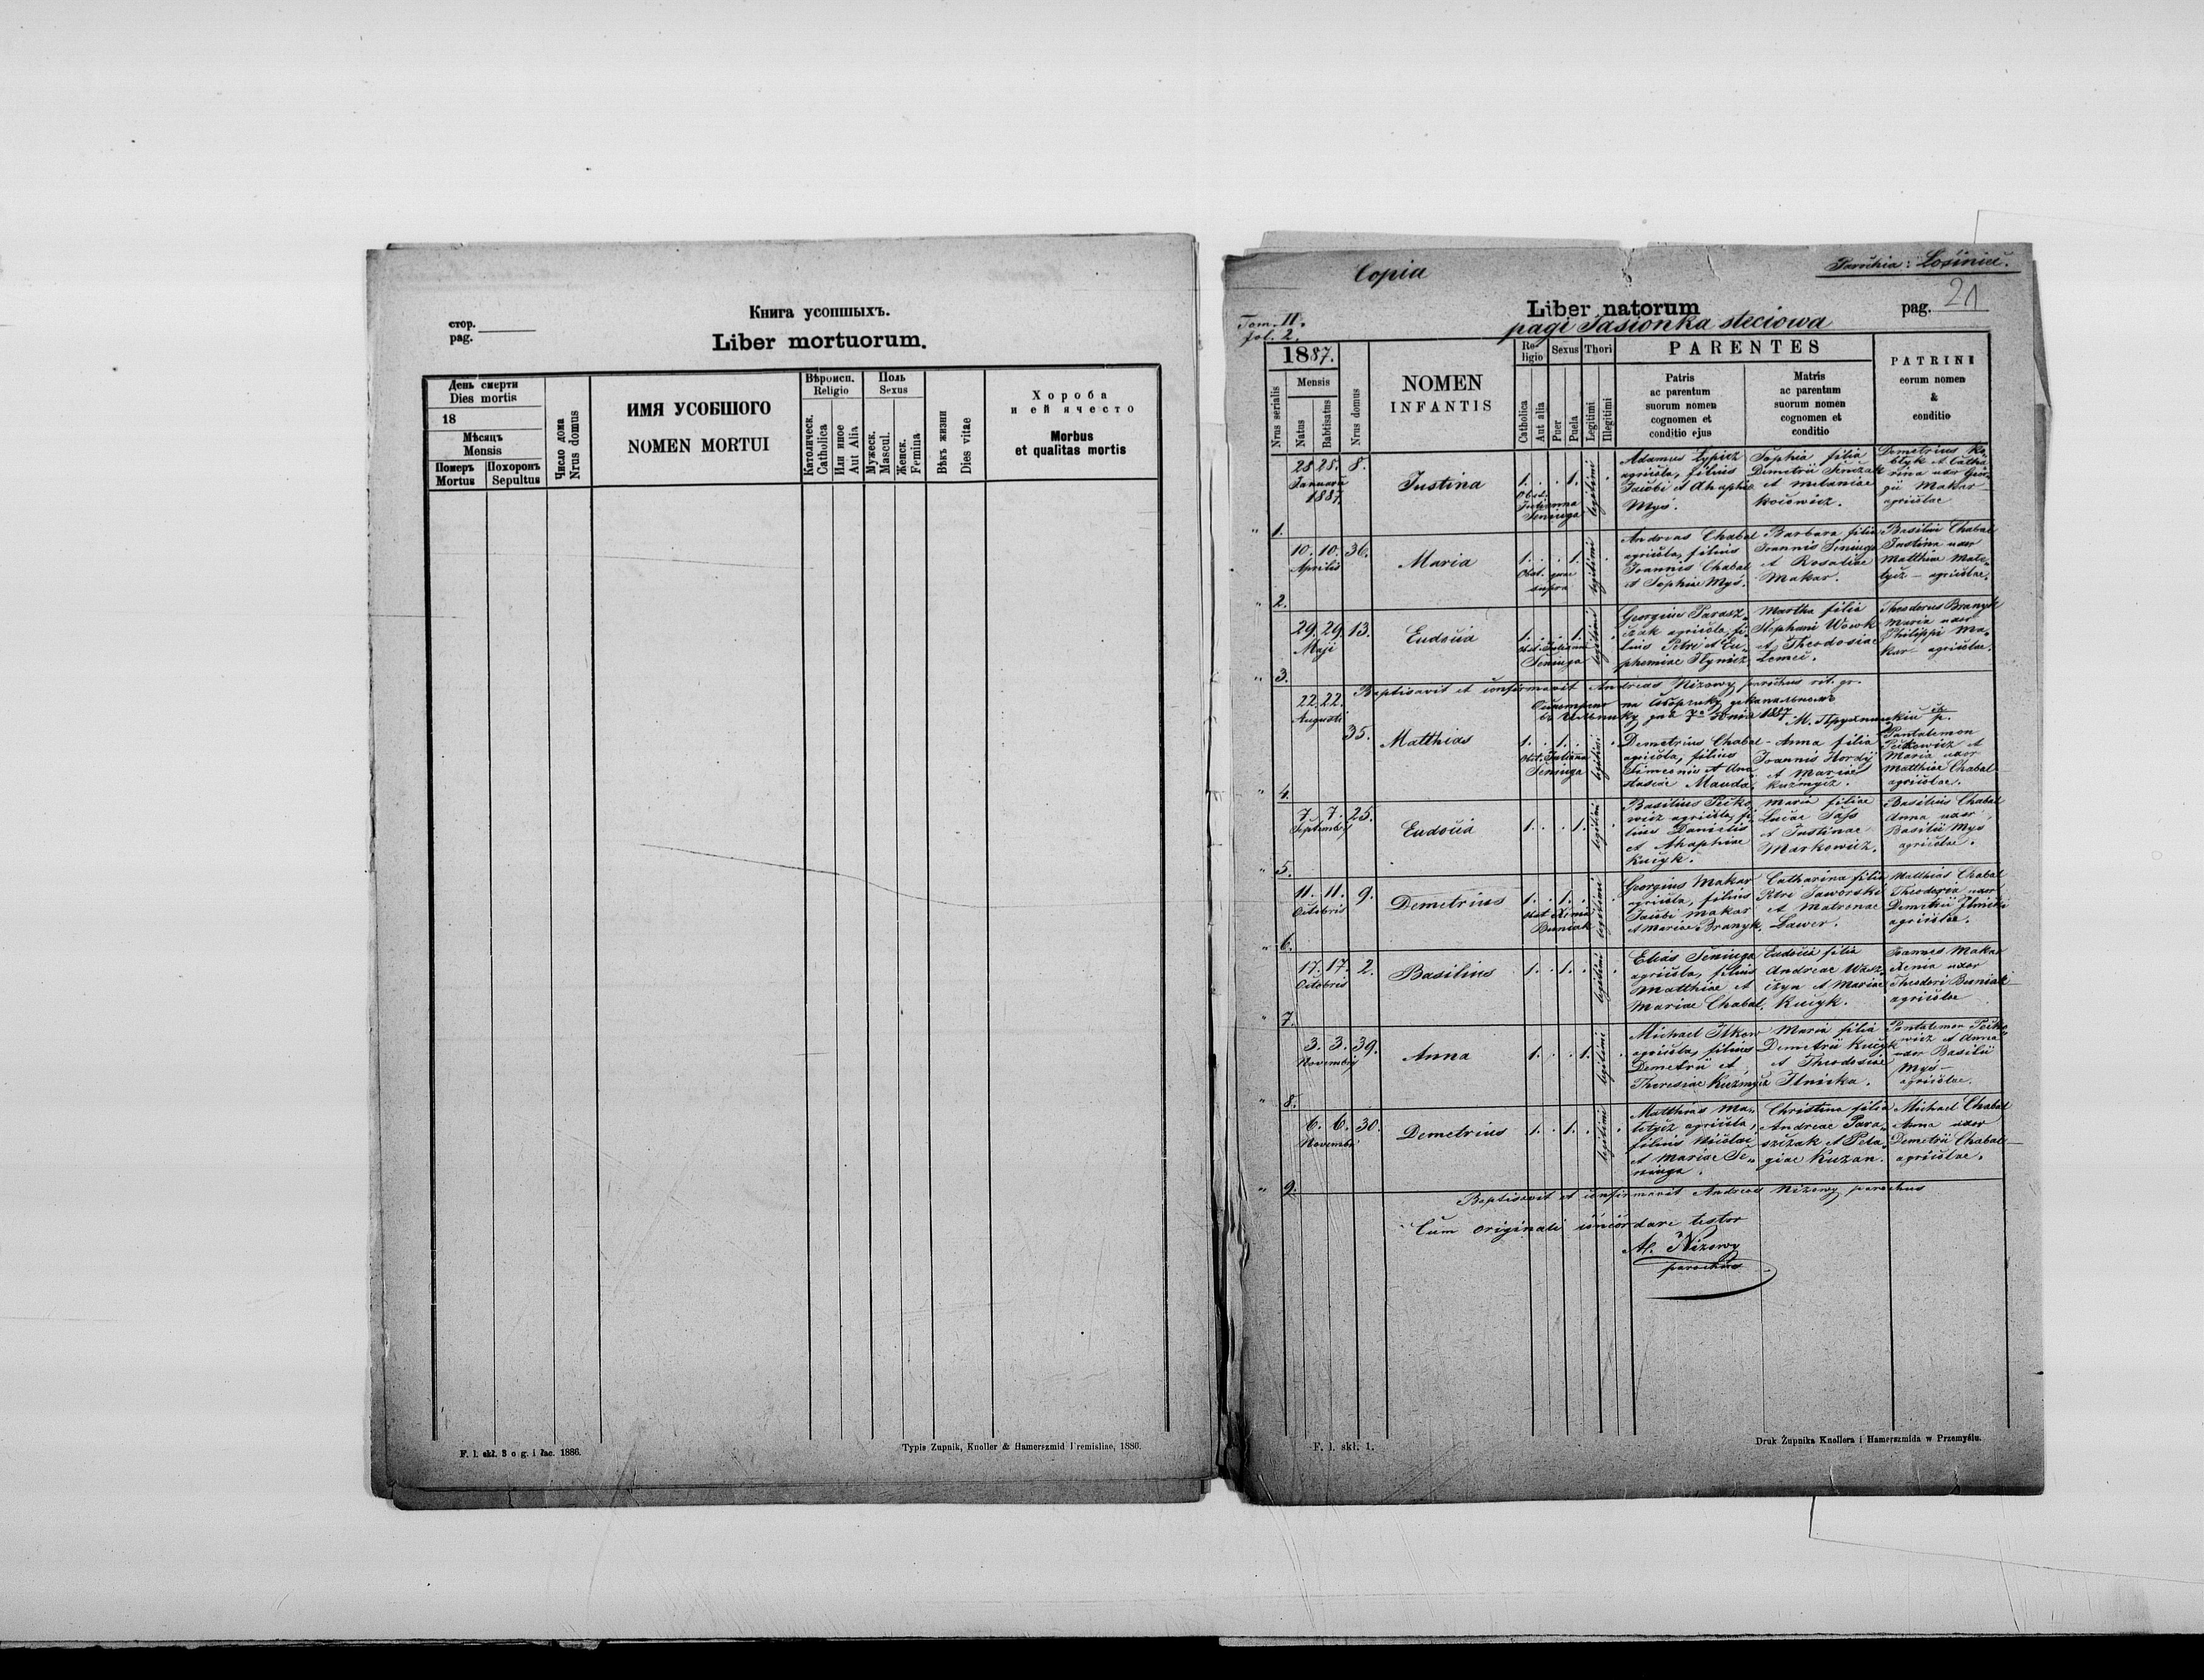 Книга усопшыхъ.
стор.
pag.
Liber mortuorum.
День смерти
Dies mortis
18
Мѣсяць
Mensis
Померъ
Mortus
Похоронъ
Sepultus
Число дома
Nrus domus
ИМЯ УСОБШОГО
NOMEN MORTUI
Вѣроисп.
Religio
Католическ.
Catholica
Или иное
Aut Alia
Поль
Sexus
Мужеск.
Mascul.
Женск.
Femina
Вѣкъ жизни
Dies vitae
Хороба
и ей ячесто
Morbus
et qualitas mortis
F. l. skł. 3 o g. i łac. 1886.
Typis Zupnik, Knoller & Hamerszmid Premisliae, 1886.
Copia
Parochia: Łosiniec.
Liber natorum
pag. 21
Tom. II.
fol. 2.
pagi Jasionka steciowa
1887.
Nrus serialis
Mensis
Natus
Babtisatus
Nrus domus
NOMEN
INFANTIS
Religio
Catholica
Aut alia
Sexus
Puer
Puela
Thori
Legitimi
Illegitimi
PARENTES
Patris
ac parentum
suorum nomen
cognomen et
conditio ejus
Matris
ac parentum
suorum nomen
cognomen et
conditio
PATRINI
eorum nomen
&
conditio
1.
28. 28. 8.
Januarii
1887.
Justina
1. . . 1. .
Obst.
Julianna
Seniuga
legitimi
Adamus Łypicz
agricola, filius
Jacobi et Ahaphie
Myś.
Sophia filia
Demetrii Senczak
et Melaniae
Kociowicz.
Demetrius Ko-
blyk et Catha-
rina uxor Geor-
gii Makar
agricolae
2.
10. 10. 36.
Aprilis
Maria
1. . . 1. .
Obst. quae
supra
legitimi
Andreas Chabal
agricola, filius
Joannis Chabal
et Sophiae Myś.
Barbara filia
Joannis Seniuga
et Rosaliae
Makar.
Basilius Chabal
Justina uxor
Matthiae Mate-
tycz - agricolae.
3.
29. 29. 13.
Maji
Eudocia
1. . . 1. .
Obst. Julianna
Seniuga
legitimi
Georgius Parasz-
czak agricola, fi-
lius Petri et Eu-
phemiae Ilynicz
Martha filia
Stephani Wowk
et Theodosiae
Łemci.
Theodorus Branyk
Maria uxor
Philippi Ma-
kar agricolae.
Baptisavit et confirmavit Andreas Nizowy parochus rit. gr.
4.
22. 22.
Augusti
35.
Matthias
1. . 1. . .
Obst. Julianna
Seniuga
legitimi
Demetrius Chabal
agricola, filius
Simeonis et Ana-
stasiae Mauda.
Anna filia
Joannis Hordÿ
et Mariae
Kuźmycz.
Pantalemon
Petkowicz et
Maria uxor
Matthiae Chabal
agricolae.
5.
7. 7. 25.
Septembris
Eudocia
1. . . 1. .
legitimi
Basilius Petko-
wicz agricola, fi-
lius Danielis
et Ahaphiae
Kucyk.
Maria filia
Lucae Sass
et Justinae
Markowicz.
Basilius Chabal
Anna uxor
Basilii Myś
agricolae.
6.
11. 11. 9.
Octobris
Demetrius
1. . 1. . .
Obst. Xenia
Buniak
legitimi
Georgius Makar
agricola, filius
Jacobi Makar
et Mariae Branyk.
Catharina filia
Petri Jaworski
et Matronae
Ławer.
Matthias Chabal
Theodozia uxor
Demetrii Ilnicki
agricolae.
7.
17. 17. 2.
Octobris
Basilius
1. . 1. . .
legitimi
Elias Seniuga
agricola, filius
Matthiae et
Mariae Chabal.
Eudocia filia
Andreae Wasz-
czyn et Mariae
Kucyk.
Joannes Makar
Xenia uxor
Theodori Buniak
agricolae
8.
3. 3. 39.
Novembris
Anna
1. . . 1. .
legitimi
Michael Ilkow
agricola, filius
Demetrii et
Theresiae Kuzmycz
Maria filia
Demetrii Kucyk
et Theodosiae
Ilnicka.
Pantalemon Petko-
wicz et Anna
uxor Basilii
Myś -
agricolae.
9.
6. 6. 30.
Novembris
Demetrius
1. . 1. . .
legitimi
Matthias Ma-
tetycz agricola,
filius Nicolai
et Mariae Se-
niuga.
Christina filia
Andreae Para-
szczak et Pela-
giae Kuzan.
Michael Chabal
Anna uxor
Demetrii Chabal
agricolae.
Baptisavit et confirmavit Andreas Nizowy parochus
Cum originali concordare testor
A. Nizowy
parochus
F. l. skł. 1.
Druk Żupnika Knollera i Hamerszmida w Przemyślu.